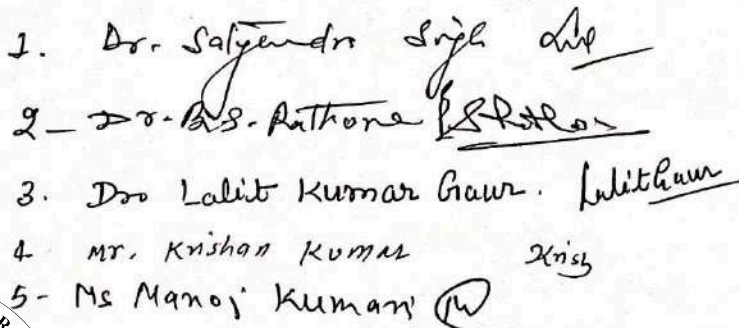 1. Dr. Satyendra Singh
2- Dr. B.S. Rathore BSRathore
3. Dr. Lalit Kumar Gaur. Lalit Gaur
4 Mr. Krishan Kumar Krish
5- Ms Manoj Kumari